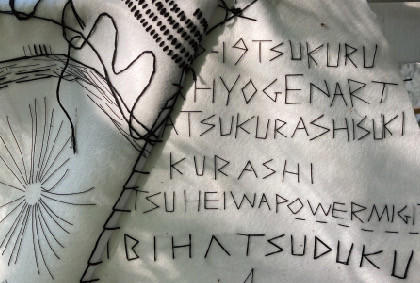 19TSUKURU
HYOGENART
ATSUKURASHISUKI
KURASHI
TSUHEIWAPOWERMIGI
IBIHATSUDUKU